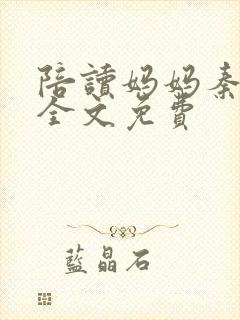 陪讀媽媽秦
全文免費
藍晶石